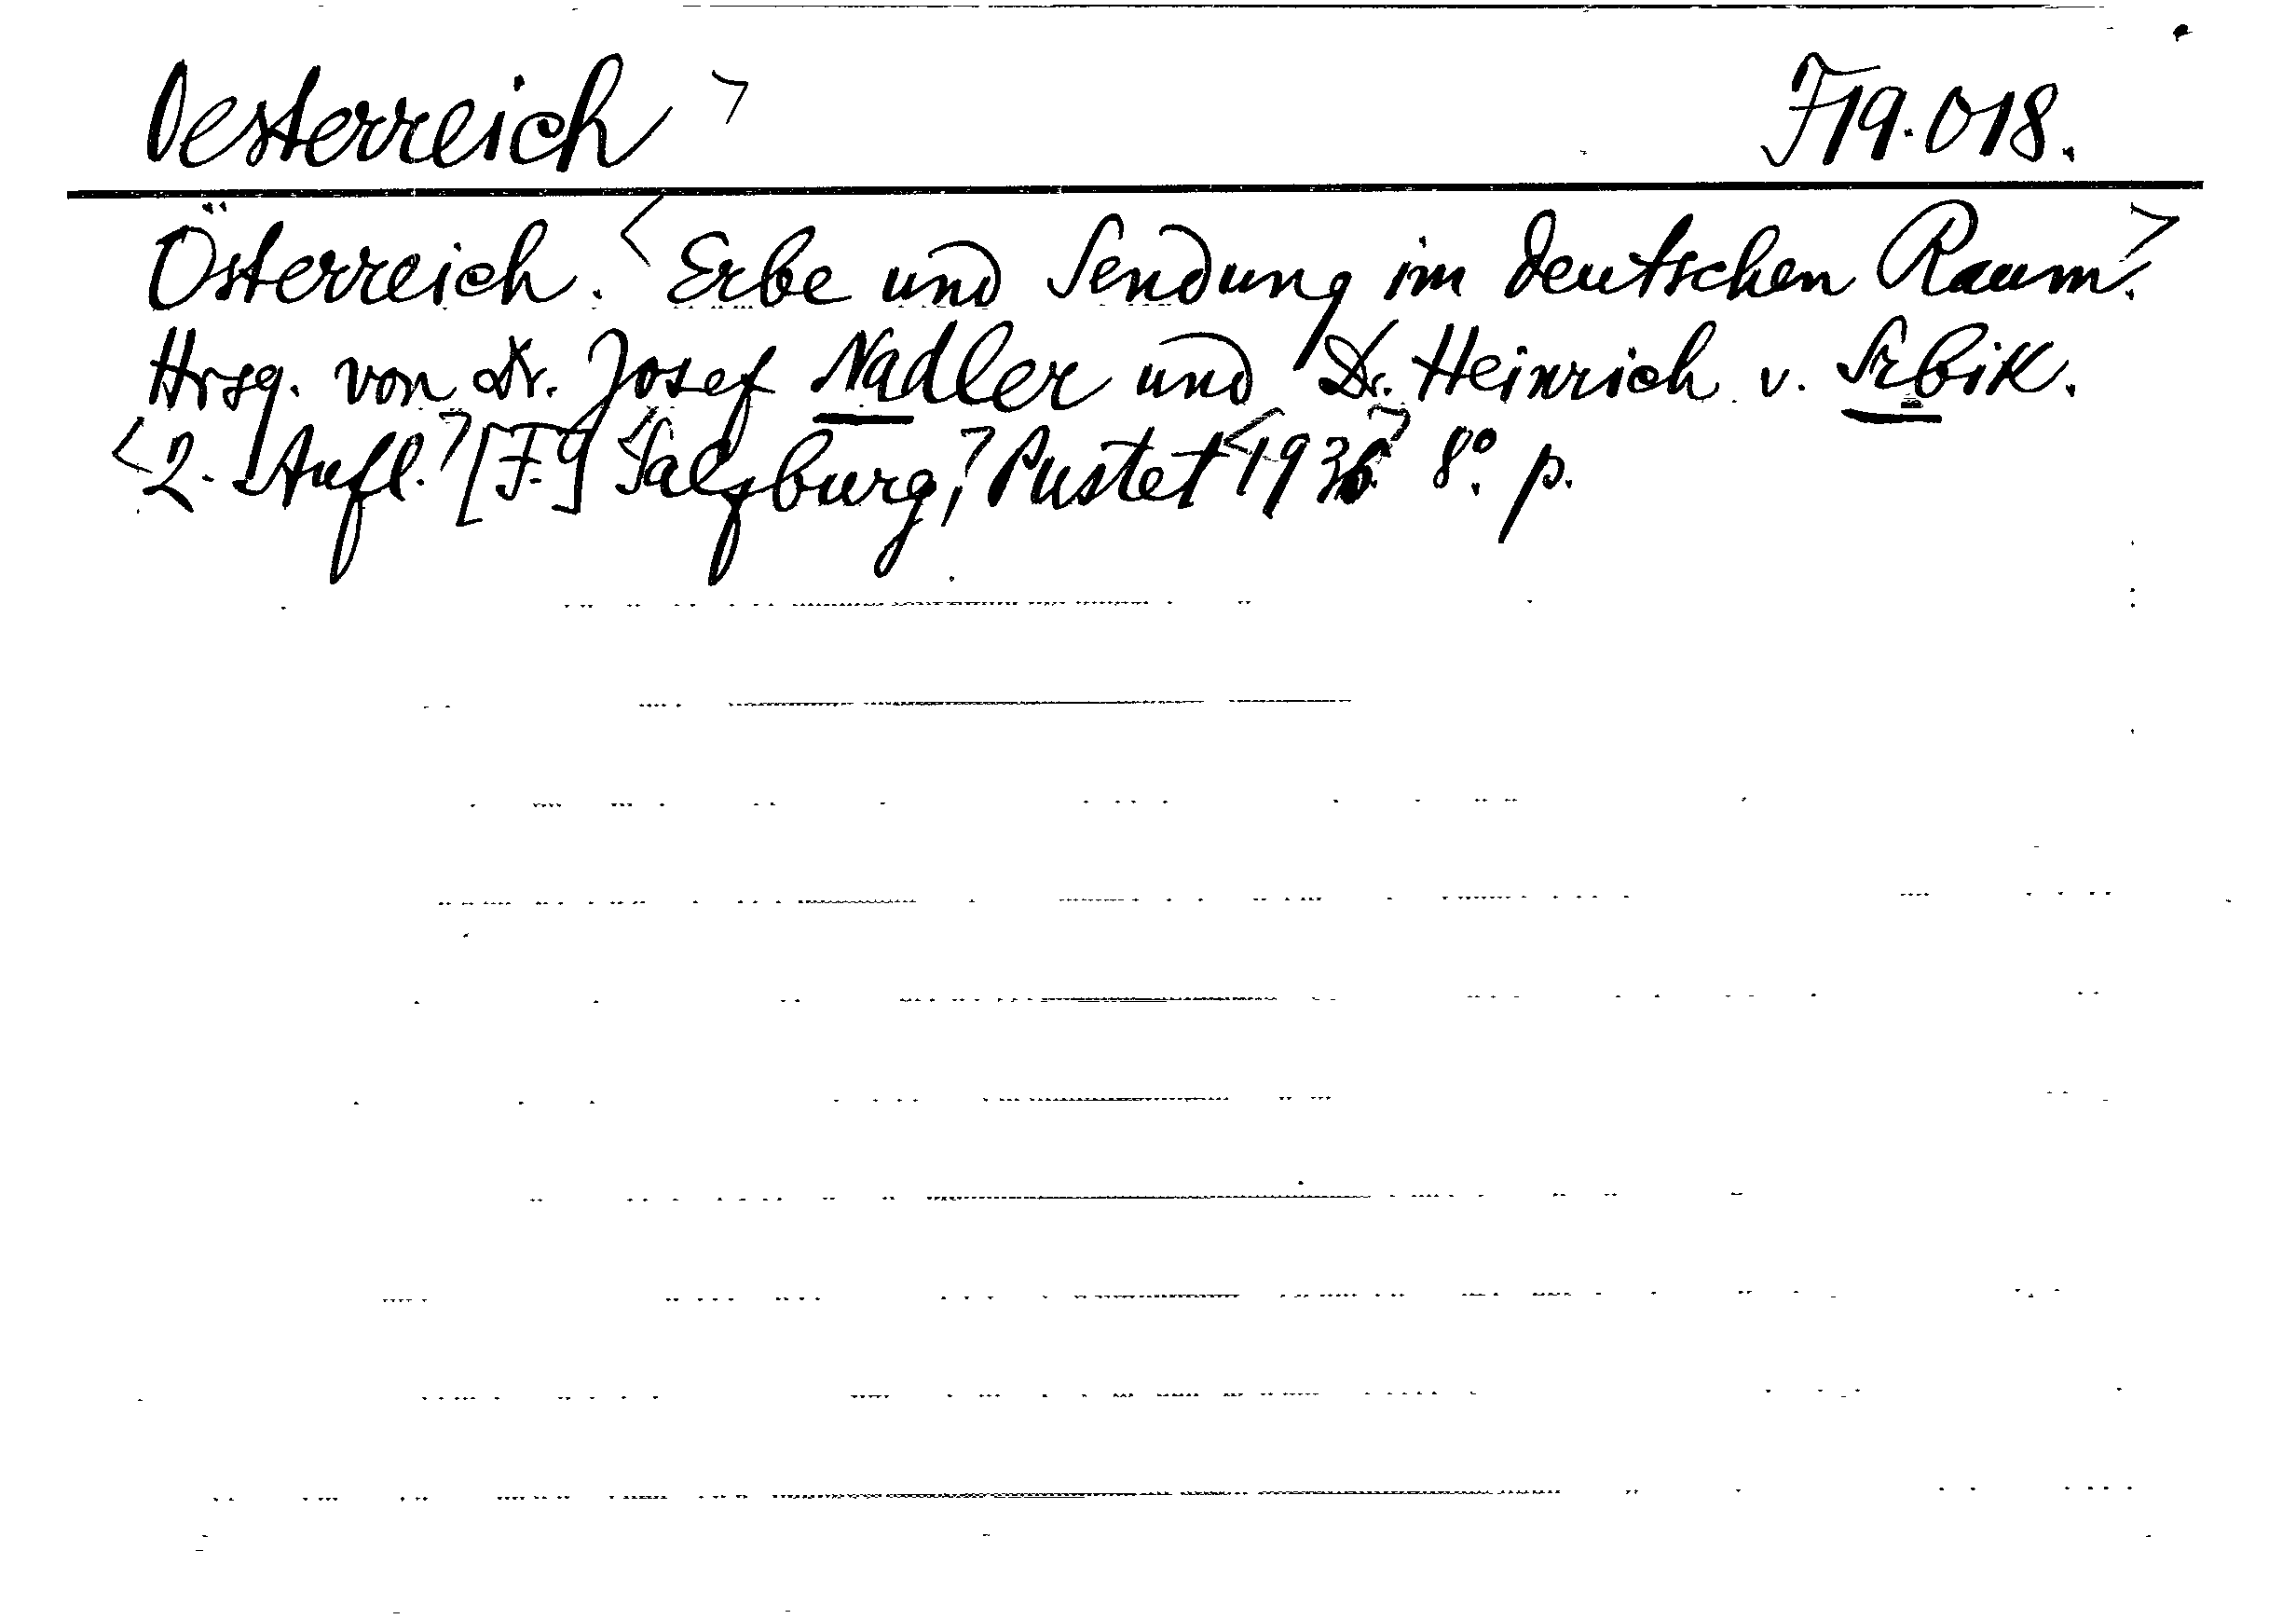 Oesterreich > F 19.018.
Österreich. <Erbe und Sendung im deutschen Raum.>
Hrsg. von Dr. Josef Nadler und Dr. Heinrich v. Srbik.
<2. Aufl.> [F.] <Salzburg,> Pustet <1936> 8°. p.